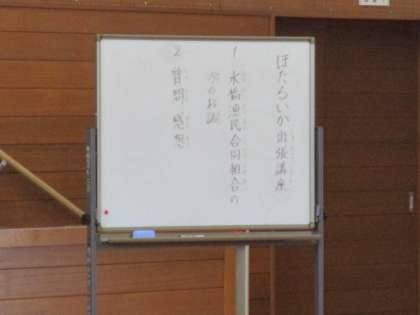 ほたるいか出張講座
1 水橋漁民合同組合の
方のお話
2 質問 感想